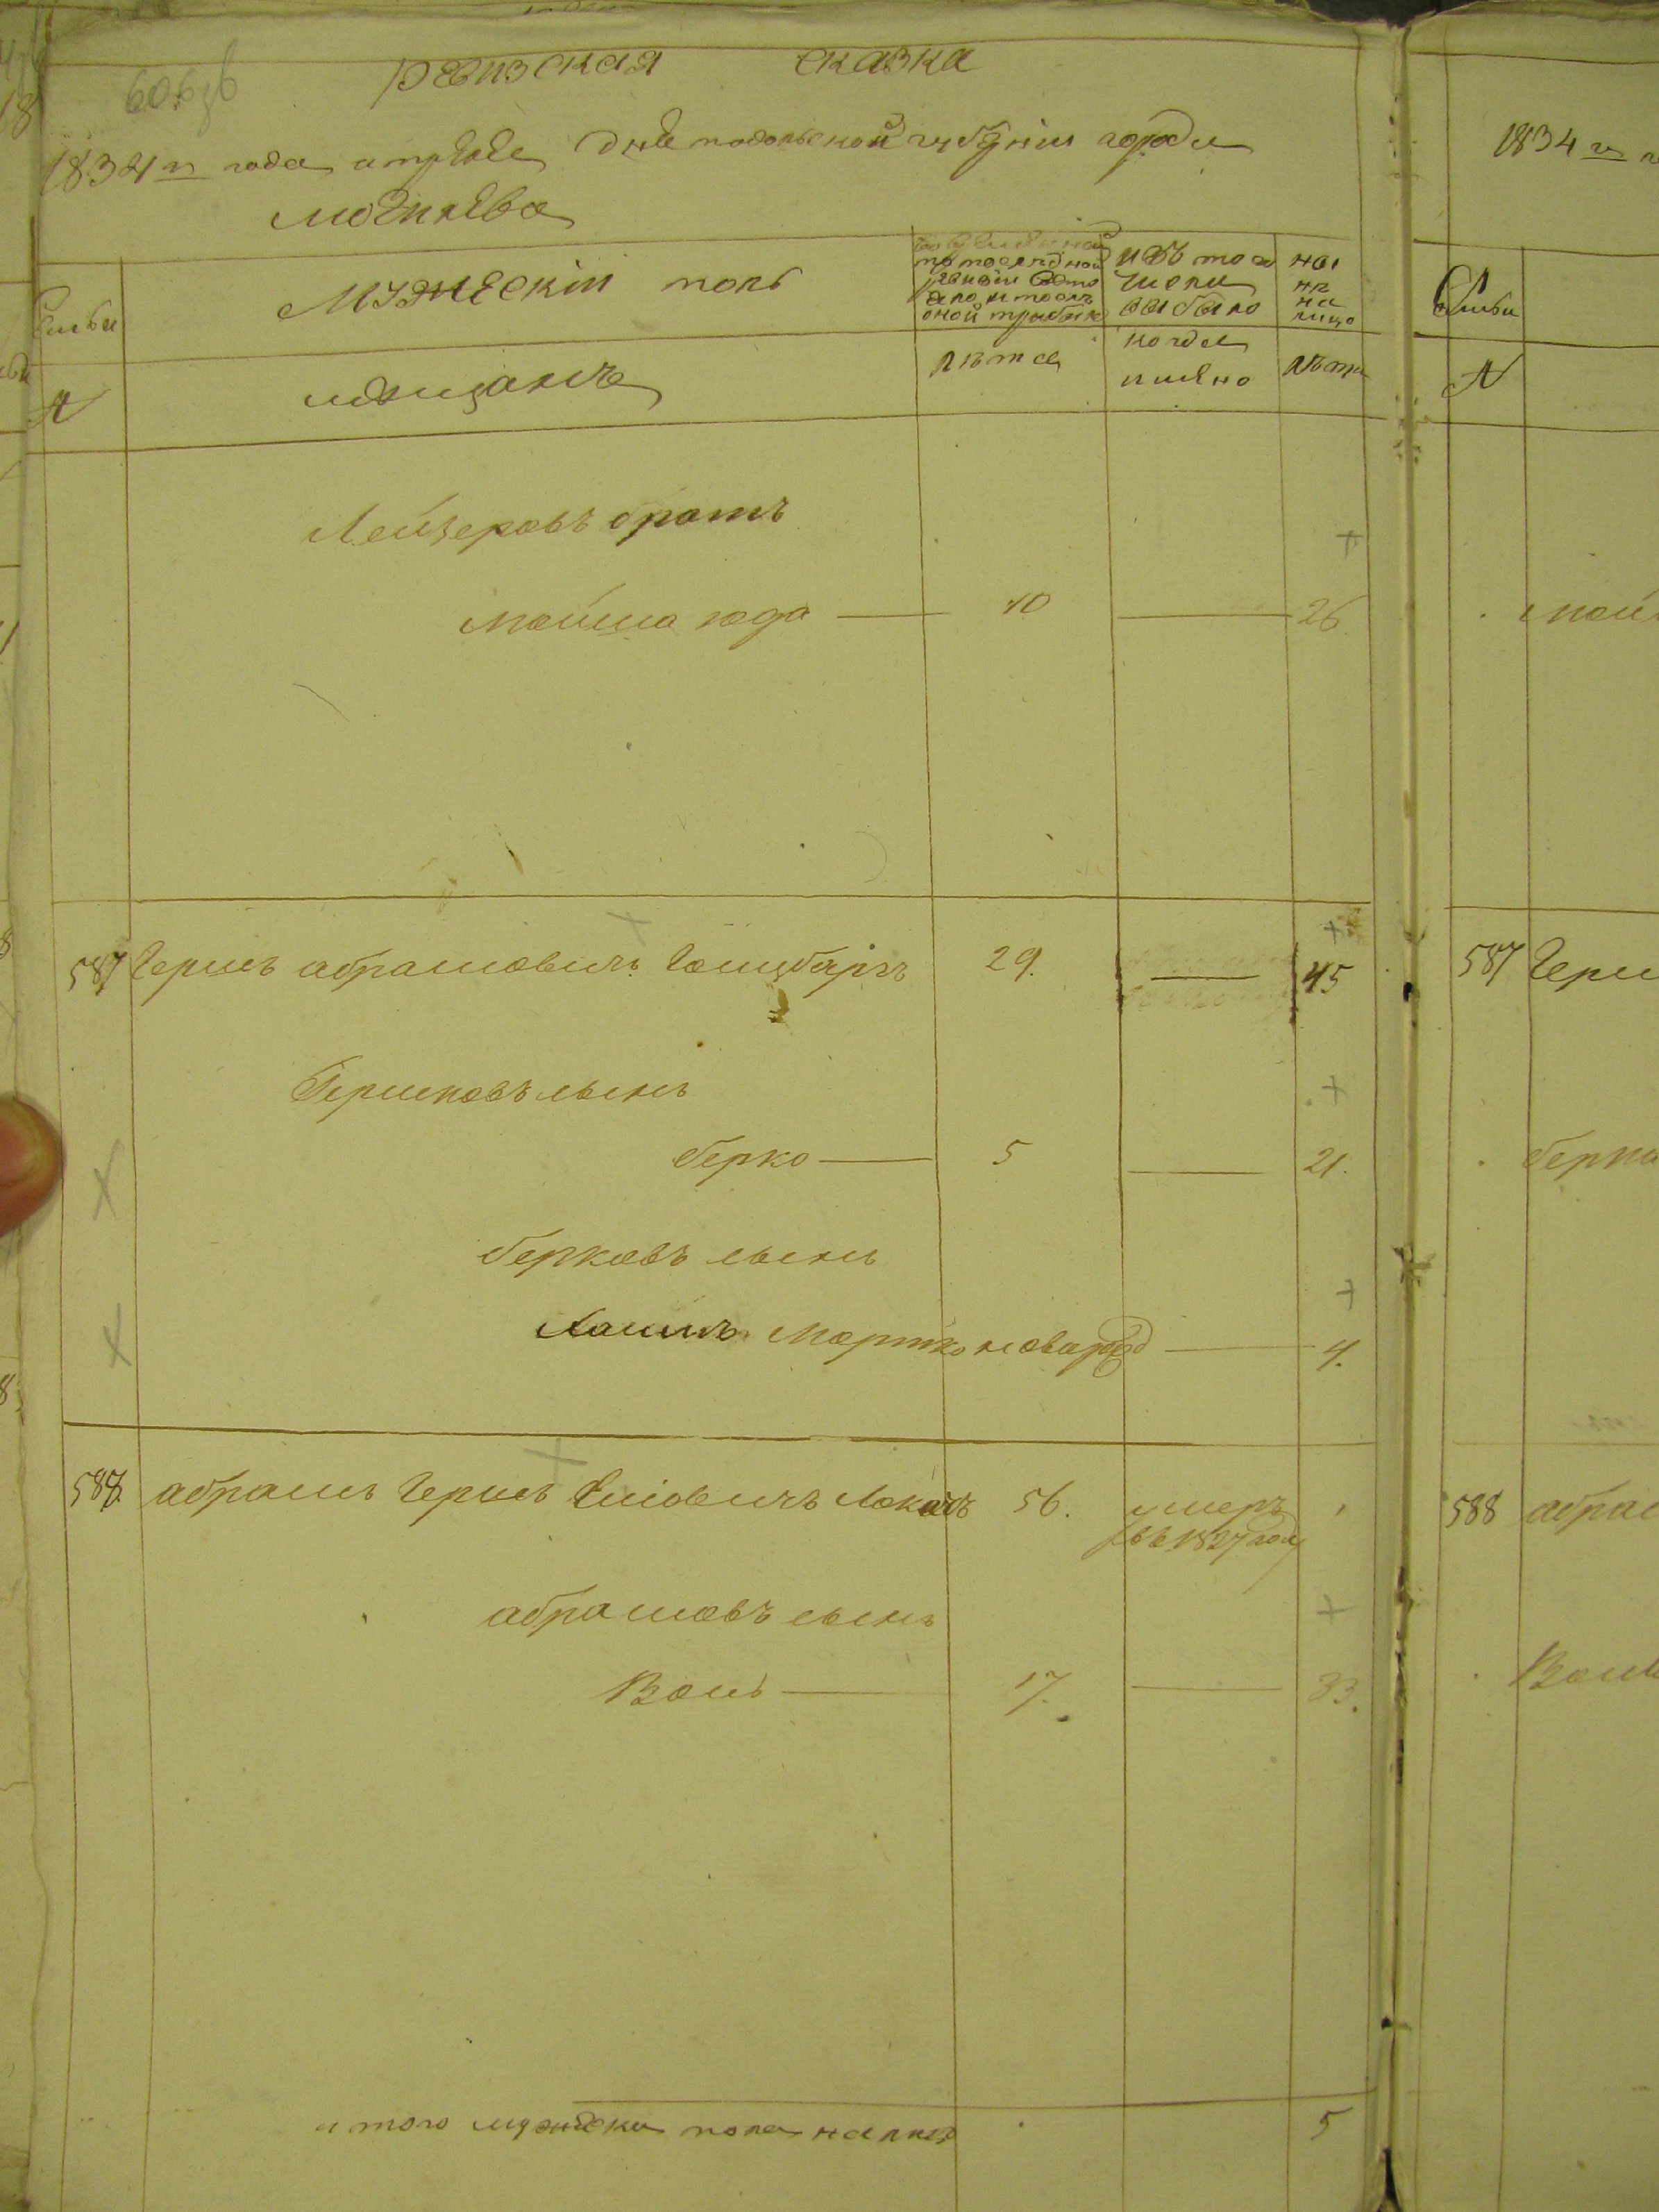 ревизская сказка
1834 го года апреля дня подольской губернии города
могилева
Семьи мужеский полъ
по последней ревизии состояло и после оной прибыло
изъ того числа выбыло
ныне на лицо
№ мещане лета когда имяно лета
Лейзеровъ братъ
мошко юда 10 26
587 Гершъ абрамовичъ Гоицбаргъ 29. 45
Гершковъ сынъ
берко 5 21.
берковъ сынъ
Хаимъ Мортко новород 4.
588. абрамъ Гершъ Сносвичъ Локачъ 56. умеръ
въ 1827 году
абрамовъ сынъ
Волъ 17. 33.
итого мужеска пола налицо 5
1834 го
Семьи
№
мош
587 Герш
берко
588 абрам
Вол